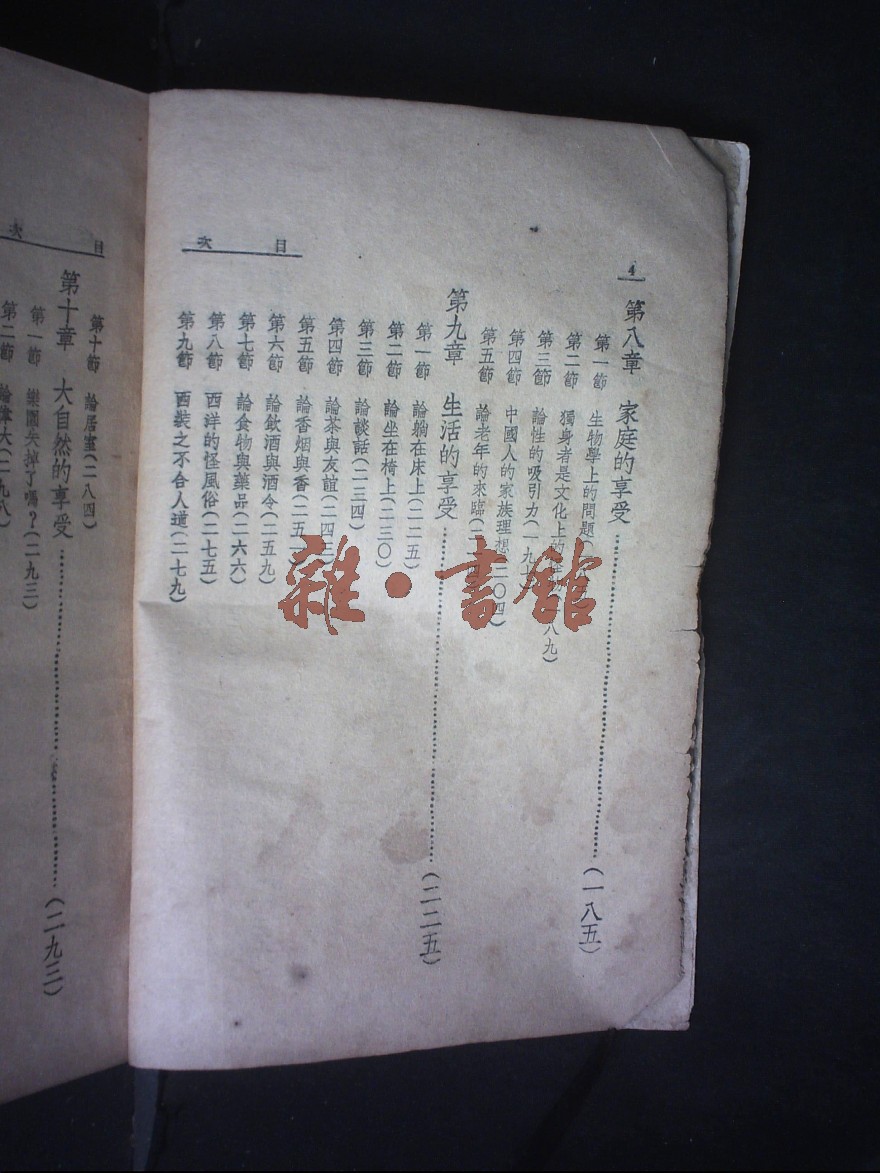 4
目 次
第八章 家庭的享受 (一八五)
第一節 生物學上的問題(
第二節 獨身者是文化上的 一八九)
第三節 論性的吸引力(一九
第四節 中國人的家族理想 二〇四)
第五節 論老年的來臨(二
第九章 生活的享受 (二二五)
第一節 論躺在床上(二二五)
第二節 論坐在椅上(二三〇)
第三節 論談話(二三四)
第四節 論茶與友誼(二四三
第五節 論香烟與香(二五
第六節 論飲酒與酒令(二五九)
第七節 論食物與藥品(二六六)
第八節 西洋的怪風俗(二七五)
第九節 西裝之不合人道(二七九)
目 次
第十節 論居室(二八四)
第十章 大自然的享受 (二九三)
第一節 樂園失掉了嗎?(二九三)
第二節 論偉大(二九八)
雜·書館